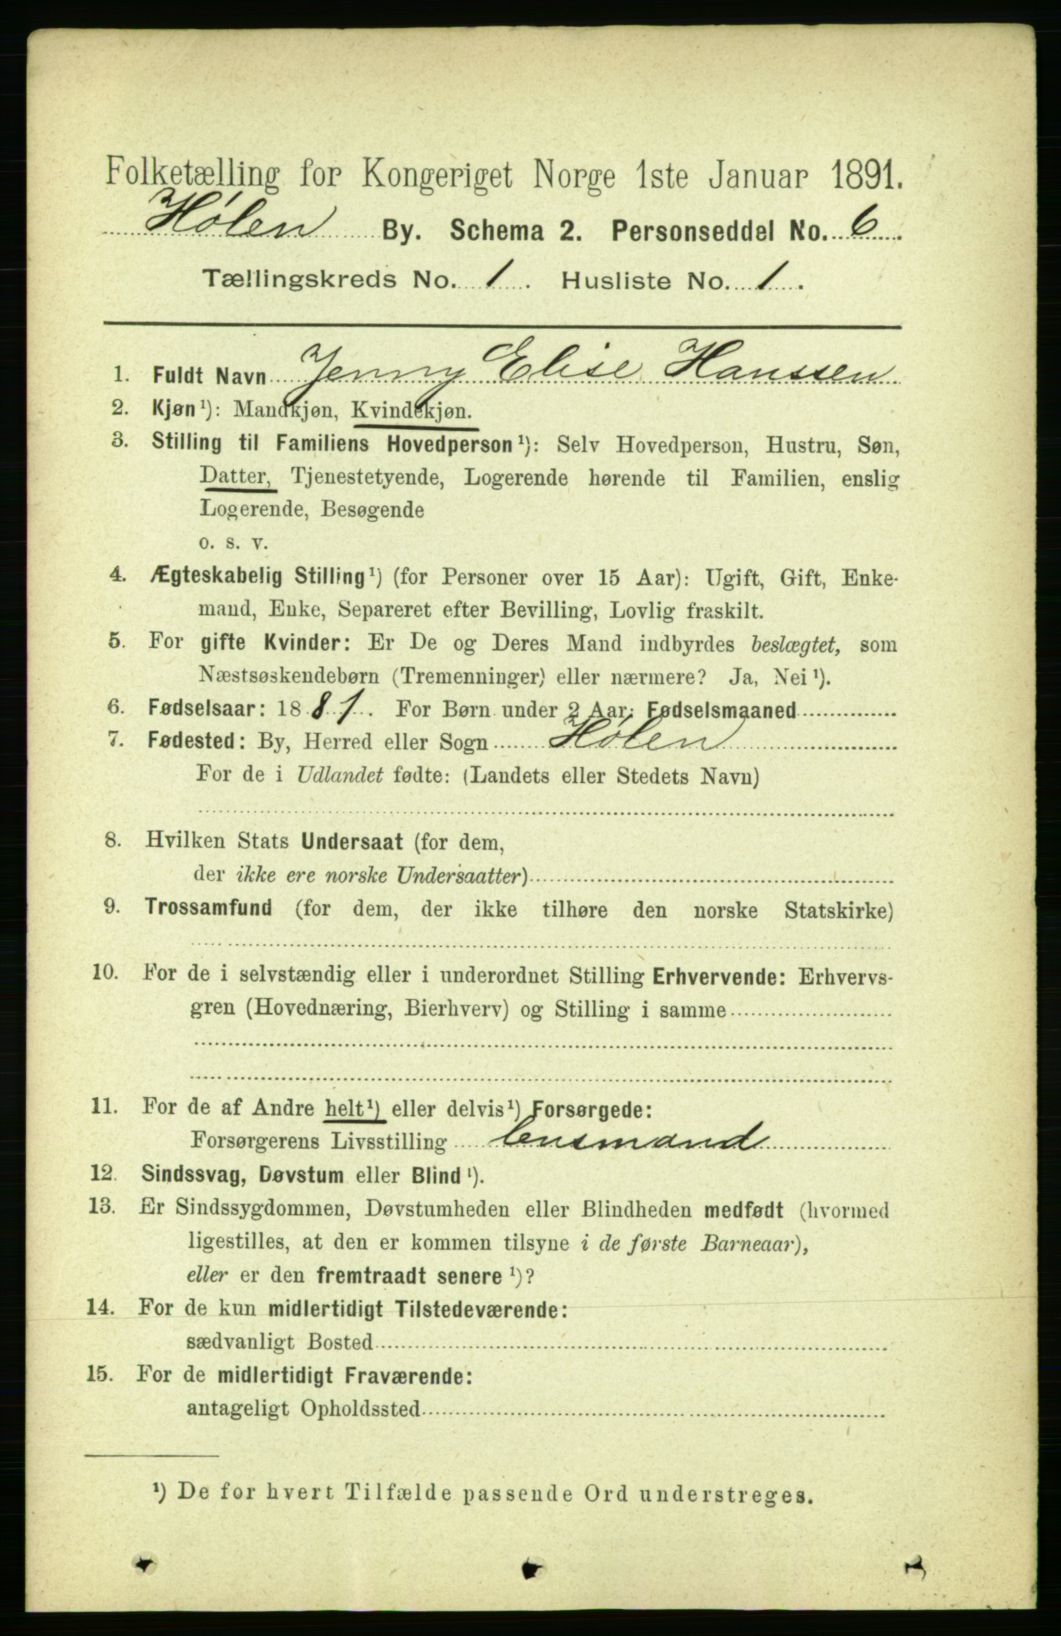 Folketælling for Kongeriget Norge 1ste Januar 1891.
Hølen By. Schema 2. Personseddel No. 6.
Tællingskreds No. 1. Husliste No. 1.
1. Fuldt Navn Jenny Elise Hanssen
2. Kjøn¹): Mandkjøn, Kvindekjøn.
3. Stilling til Familiens Hovedperson¹): Selv Hovedperson, Hustru, Søn,
Datter, Tjenestetyende, Logerende hørende til Familien, enslig
Logerende, Besøgende
o. s. v.
4. Ægteskabelig Stilling¹) (for Personer over 15 Aar): Ugift, Gift, Enke-
mand, Enke, Separeret efter Bevilling, Lovlig fraskilt.
5. For gifte Kvinder: Er De og Deres Mand indbyrdes beslægtet, som
Næstsøskendebørn (Tremenninger) eller nærmere? Ja, Nei¹).
6. Fødselsaar: 1881. For Børn under 2 Aar: Fødselsmaaned
7. Fødested: By, Herred eller Sogn Hølen
For de i Udlandet fødte: (Landets eller Stedets Navn)
8. Hvilken Stats Undersaat (for dem,
der ikke ere norske Undersaatter)
9. Trossamfund (for dem, der ikke tilhøre den norske Statskirke)
10. For de i selvstændig eller i underordnet Stilling Erhvervende: Erhvervs-
gren (Hovednæring, Bierhverv) og Stilling i samme
11. For de af Andre helt¹) eller delvis¹) Forsørgede:
Forsørgerens Livsstilling Lensmand
12. Sindssvag, Døvstum eller Blind¹).
13. Er Sindssygdommen, Døvstumheden eller Blindheden medfødt (hvormed
ligestilles, at den er kommen tilsyne i de første Barneaar),
eller er den fremtraadt senere¹)?
14. For de kun midlertidigt Tilstedeværende:
sædvanligt Bosted
15. For de midlertidigt Fraværende:
antageligt Opholdssted
¹) De for hvert Tilfælde passende Ord understreges.